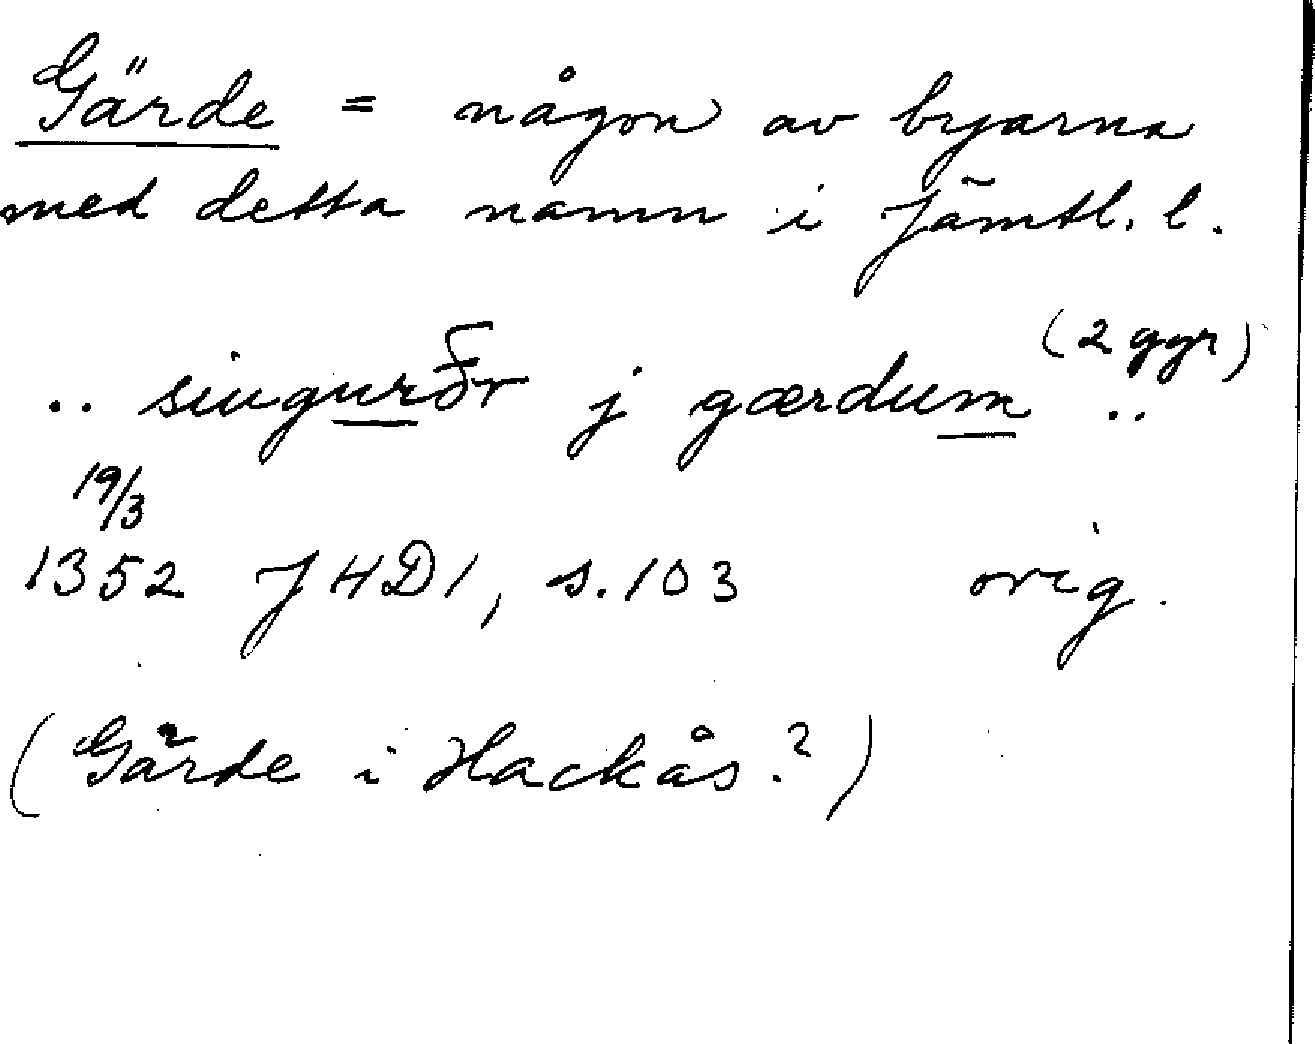 Gärde = någon av byarna
med detta namn i Jämtl. l.
(2 ggr)
.. siugurðr j gærdum ..
19/3
1352 JHD1, s.103 orig.
(Gärde i Hackås?)